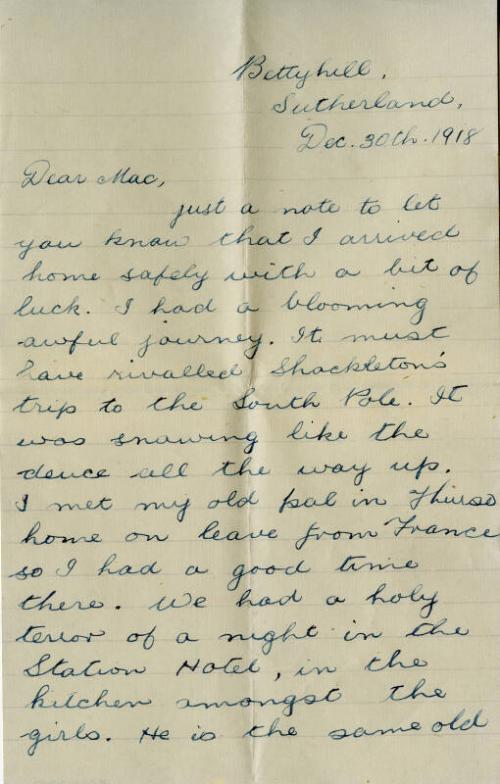 Bettyhill,
Sutherland,
Dec. 30th. 1918
Dear Mac,
just a note to let
you know that I arrived
home safely with a bit of
luck. I had a blooming
awful journey. It must
have rivalled Shackleton's
trip to the South Pole. It
was snowing like the
deuce all the way up.
I met my old pal in Thurso
home on leave from France
so I had a good time
there. We had a holy
terror of a night in the
Station Hotel, in the
kitchen amongst the
girls. He is the same old